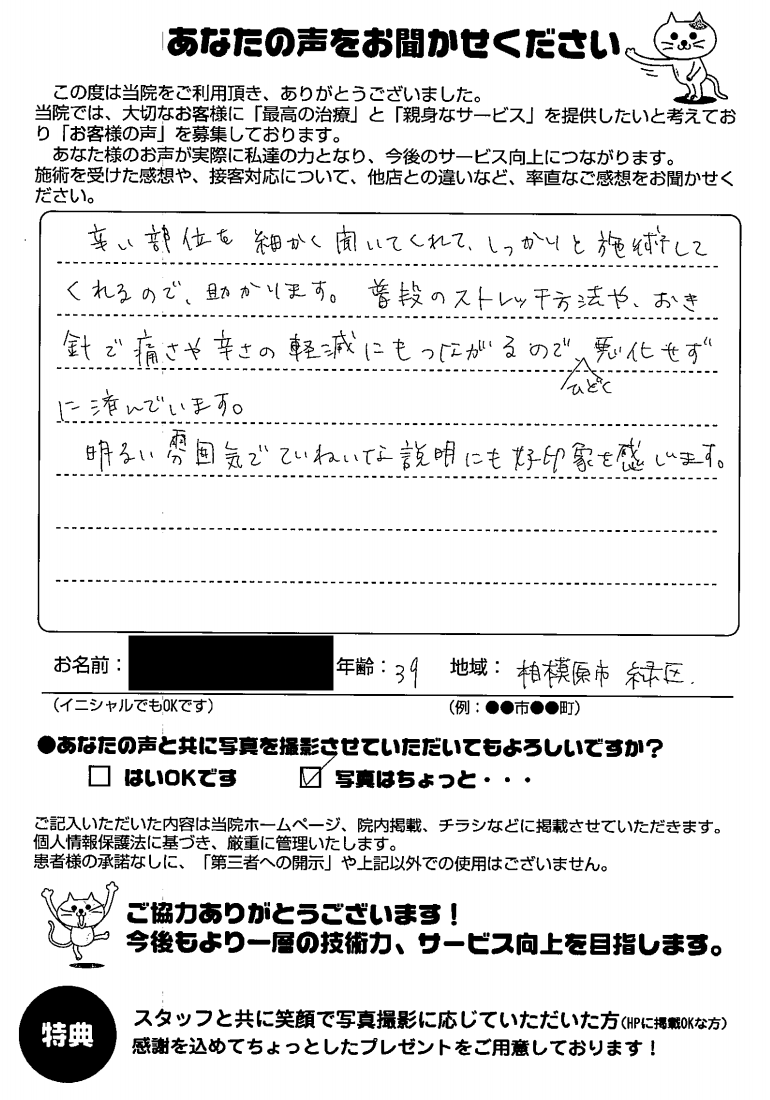 あなたの声をお聞かせください
この度は当院をご利用頂き、ありがとうございました。
当院では、大切なお客様に「最高の治療」と「親身なサービス」を提供したいと考えてお
り「お客様の声」を募集しております。
あなた様のお声が実際に私達の力となり、今後のサービス向上につながります。
施術を受けた感想や、接客対応について、他店との違いなど、率直なご感想をお聞かせく
ださい。
辛い部位を細かく聞いてくれて、しっかりと施術して
くれるので、助かります。普段のストレッチ方法や、おき
針で痛さや辛さの軽減にもつながるので、悪化せず
ひどく
に済んでいます。
明るい雰囲気でていねいな説明にも好印象を感じます。
お名前： 年齢：39 地域：相模原市 緑区.
（イニシャルでもOKです） （例：●●市●●町）
●あなたの声と共に写真を撮影させていただいてもよろしいですか？
□ はいOKです ☑ 写真はちょっと・・・
ご記入いただいた内容は当院ホームページ、院内掲載、チラシなどに掲載させていただきます。
個人情報保護法に基づき、厳重に管理いたします。
患者様の承諾なしに、「第三者への開示」や上記以外での使用はございません。
ご協力ありがとうございます！
今後もより一層の技術力、サービス向上を目指します。
特典
スタッフと共に笑顔で写真撮影に応じていただいた方（HPに掲載OKな方）
感謝を込めてちょっとしたプレゼントをご用意しております！